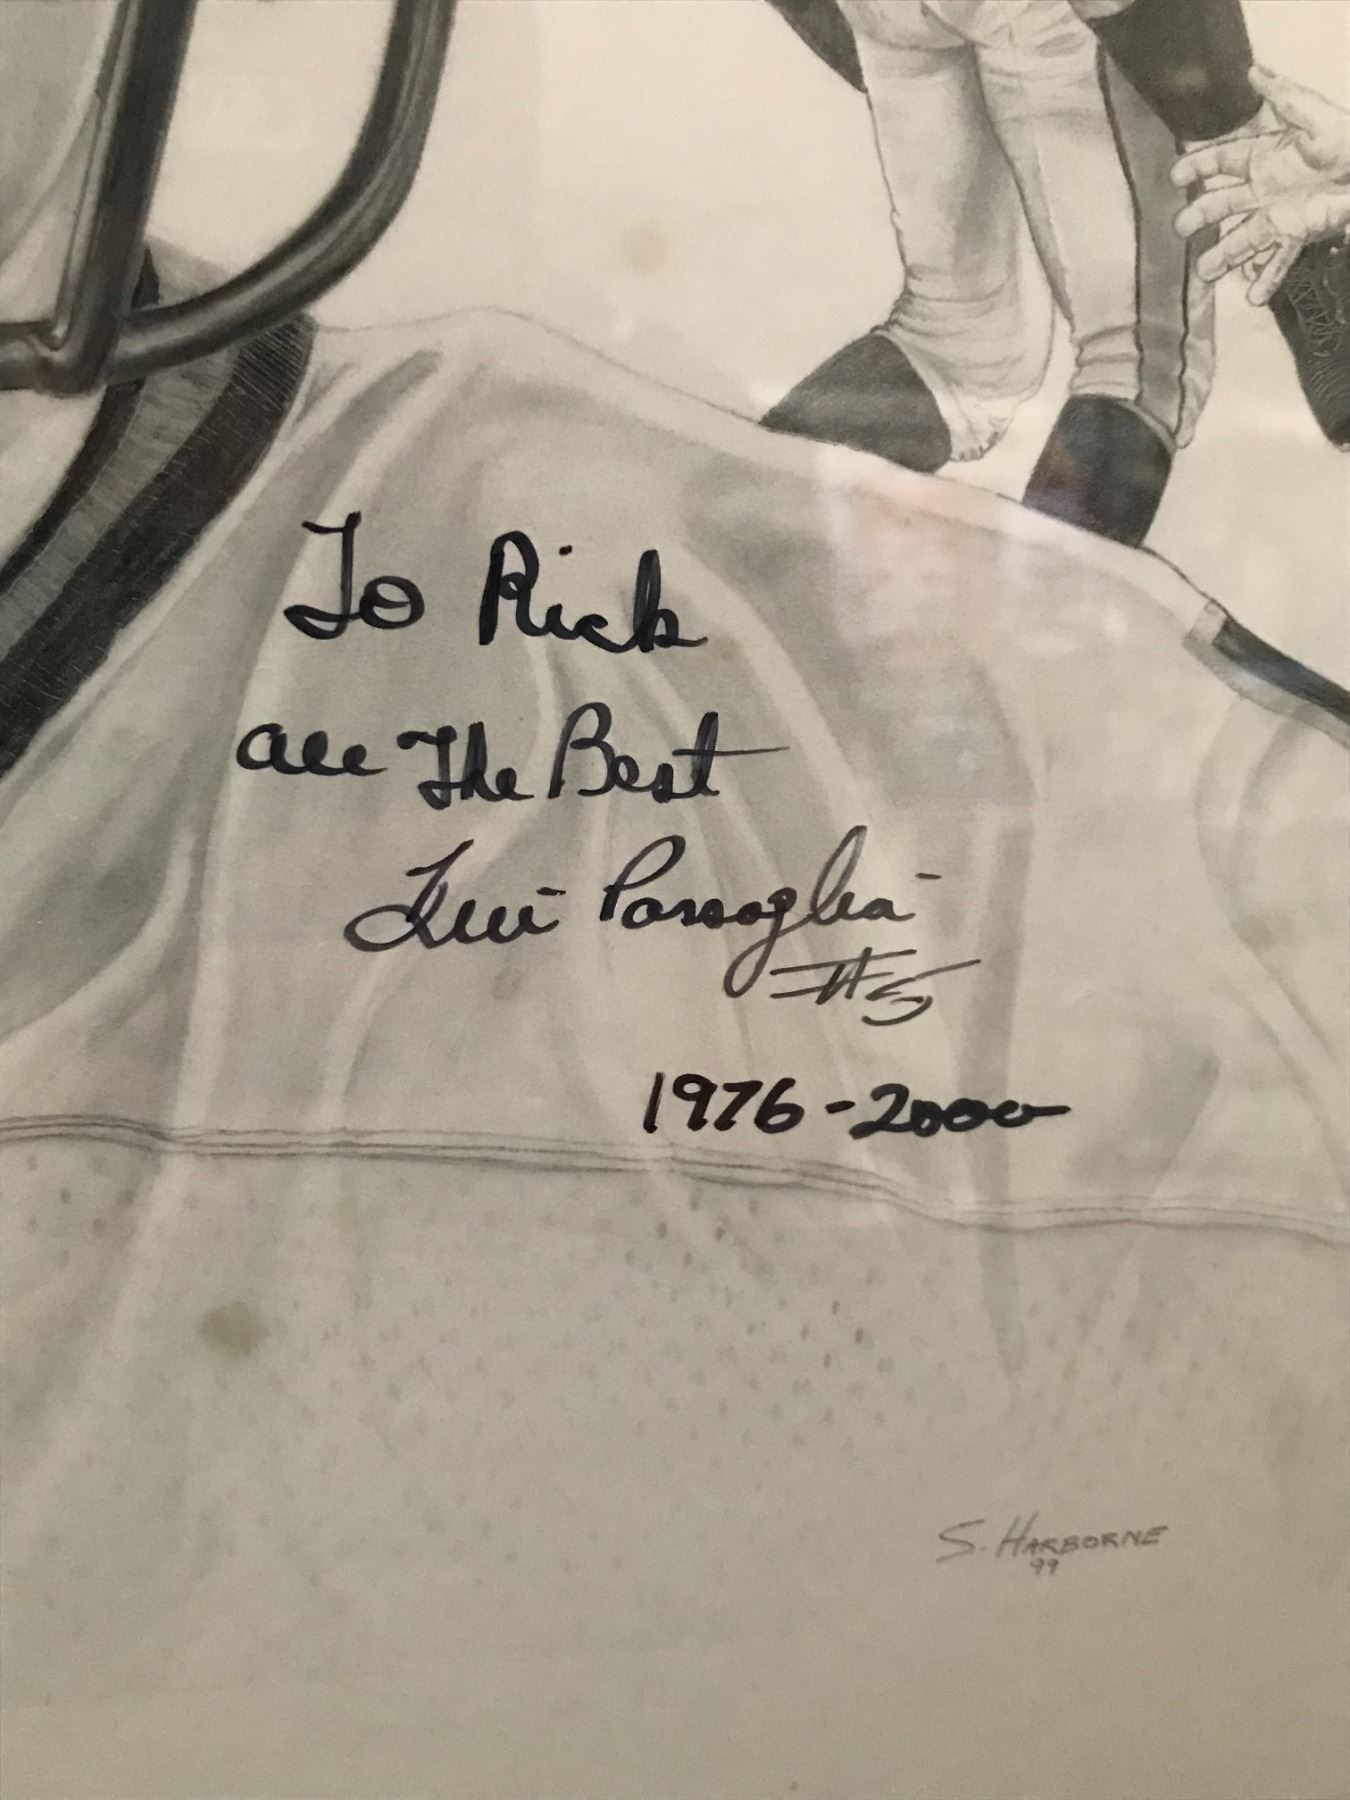 To Rick
all The Best
Lui Passaglia
#5
1976-2000
S. HARBORNE
99